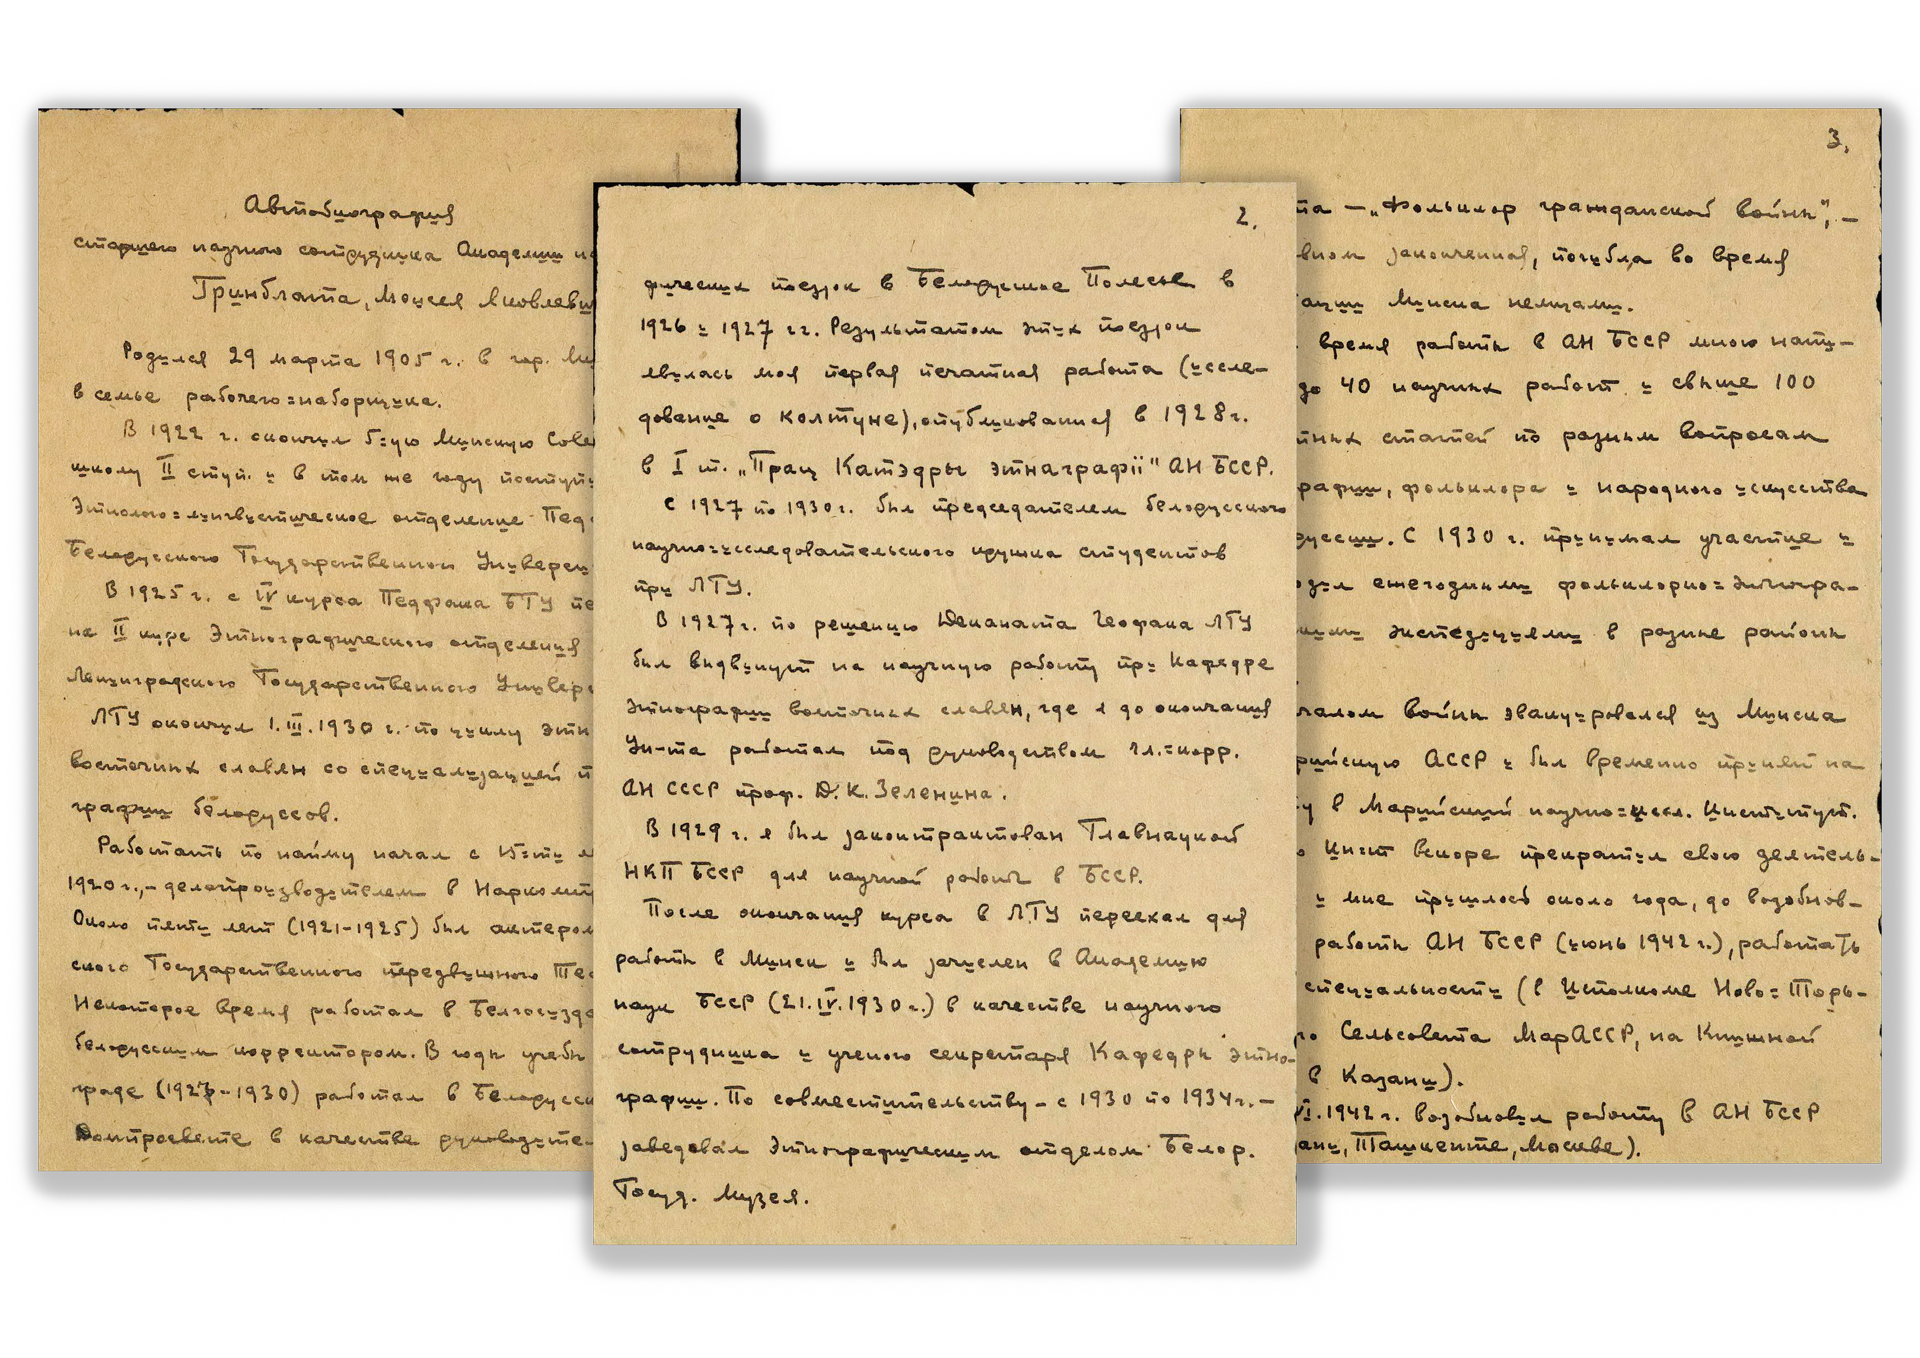 Автобиография
старшего научного сотрудника Академии на
Гринблата, Моисея Яковлеви
Родился 29 марта 1905 г. в гор. Ми
в семье рабочего=наборщика.
В 1922 г. окончил 5=ую Минскую Сове
школу II ступ. и в том же году поступи
Этнолого=лингвистическое отделение Пед
Белорусского Государственного Универси
В 1925 г. с IV курса Педфака БГУ пе
на II курс Этнографического отделения
Ленинградского Государственного Универс
ЛГУ окончил 1.III.1930 г. по циклу этн
восточных славян со специализацией п
графии белоруссов.
Работать по найму начал с 15=ти л
1920 г., – делопроизводителем в Наркомп
Около пяти лет (1921-1925) был актером
ского Государственного передвижного Теа
Некоторое время работал в Белгосизда
белорусским корректором. В годы учебы
граде (1927-1930) работал в Белорусск
Домпросвете в качестве руководите
2.
фических поездок в Белорусское Полесье в
1926 и 1927 гг. Результатом этих поездок
явилась моя первая печатная работа (иссле-
дование о колтуне), опубликованная в 1928г.
в I т. „Прац Катэдры этнаграфіі" АН БССР.
С 1927 по 1930г. был председателем белорусского
научно=исследовательского кружка студентов
при ЛГУ.
В 1927г. по решению Деканата Геофака ЛГУ
был выдвинут на научную работу при Кафедре
этнографии восточных славян, где я до окончания
Ун-та работал под руководством чл.=корр.
АН СССР проф. Д.К. Зеленина.
В 1929 г. я был законтрактован Главнаукой
НКП БССР для научной работы в БССР.
После окончания курса в ЛГУ переехал для
работы в Минск и был зачислен в Академию
наук БССР (21.IV.1930г.) в качестве научного
сотрудника и ученого секретаря Кафедры этно-
графии. По совместительству – с 1930 по 1934г. –
заведовал Этнографическим отделом Белор.
Госуд. Музея.
3.
та – „Фольклор гражданской войны", –
вном законченная, погибла во время
ации Минска немцами.
время работы в АН БССР мною напи-
до 40 научных работ и свыше 100
тных статей по разным вопросам
рафии, фольклора и народного искусства
руссии. С 1930 г. принимал участие и
одил ежегодными фольклорно=этногра-
кими экспедициями в разные районы
чалом войны эвакуировался из Минска
рийскую АССР и был временно принят на
у в Марийский научно=иссл. Институт.
о Инст-т вскоре прекратил свою деятель-
и мне пришлось около года, до возобнов-
работы АН БССР (июнь 1942 г.), работать
специальности (в Исполкоме Ново=Торь-
го Сельсовета МарАССР, на Книжной
в Казани).
VI.1942г. возобновил работу в АН БССР
ани, Ташкенте, Москве).